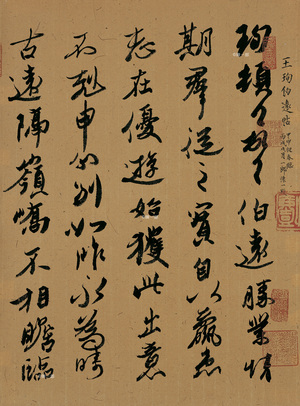 珣頓首頓首伯遠勝業情
期群從之寶自以羸患
志在優遊始獲此出意
不剋申分別如昨永為疇
古遠隔嶺嶠不相瞻臨
王珣伯遠帖